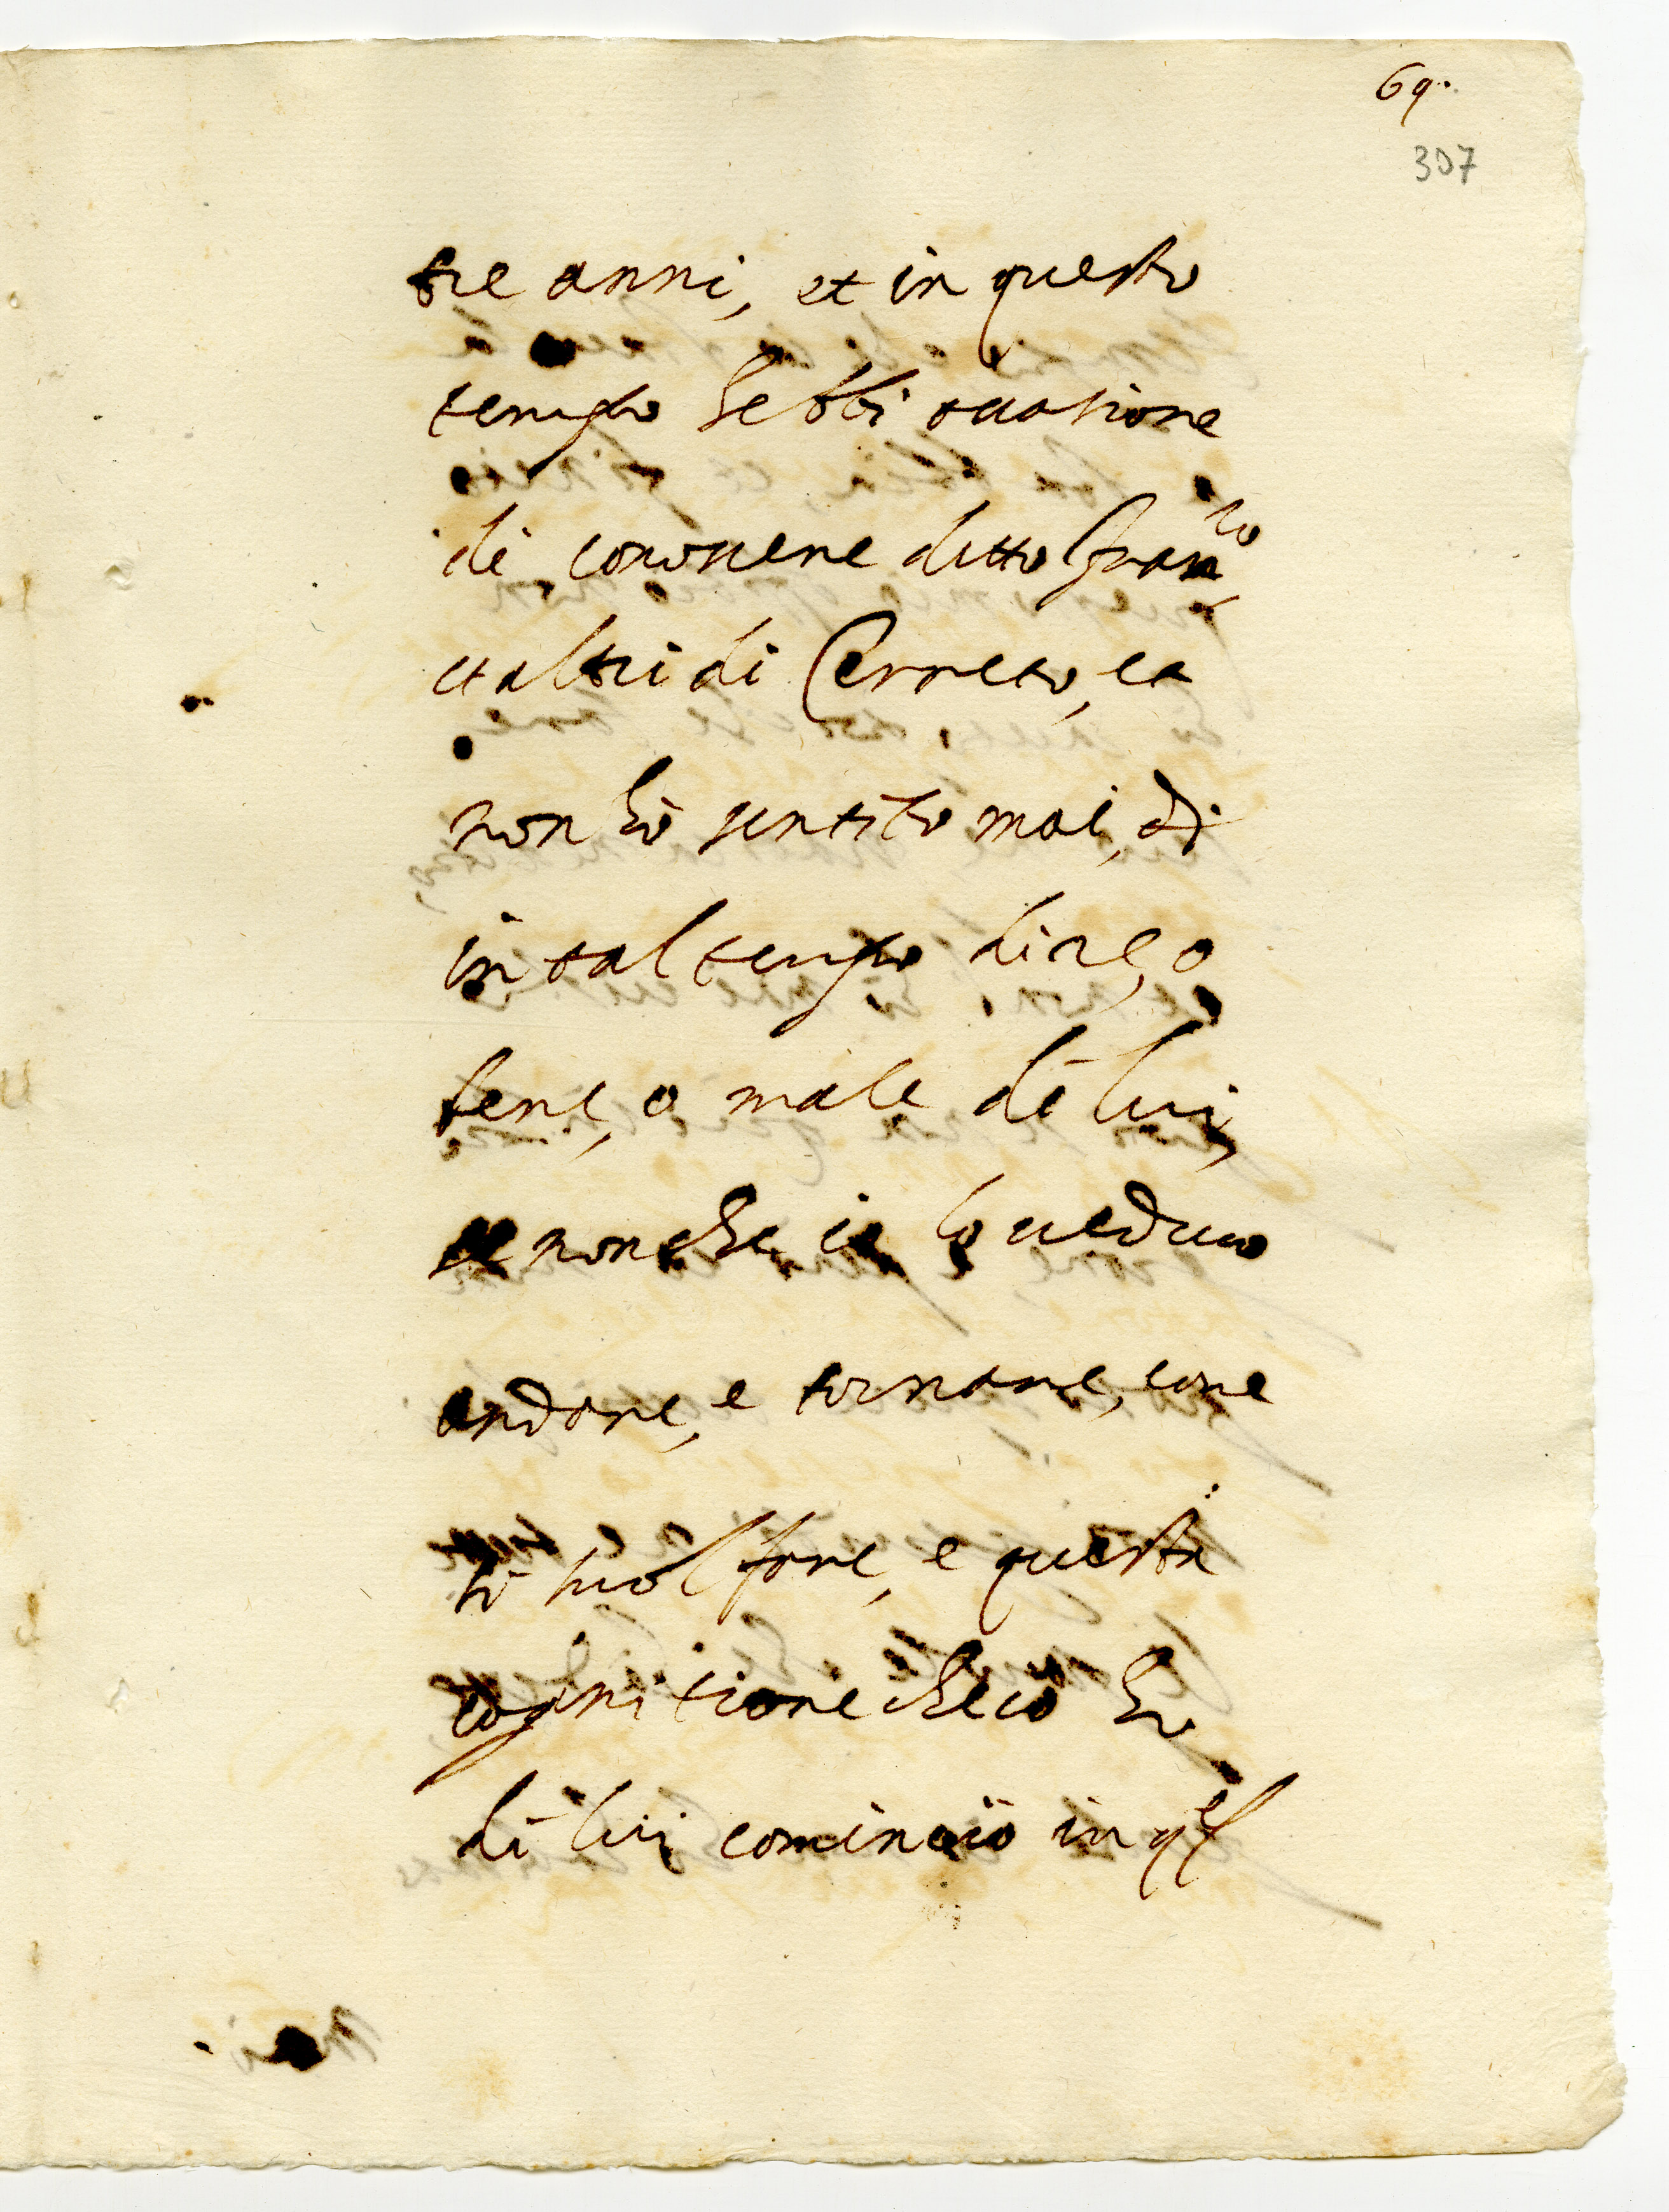 69.
307
tre anni, et in questo
tempo hebbi occasione
di conoscere ditto Fran.co
et altri di Cerreto, et
non hò sentito mai, di
in tal tempo dire, o
bene, o male di lui,
se non che io lo uedeuo
andare, e tornare, come
si suol fare, e questa
cognitione che io hò
di lui cominciò in q.l